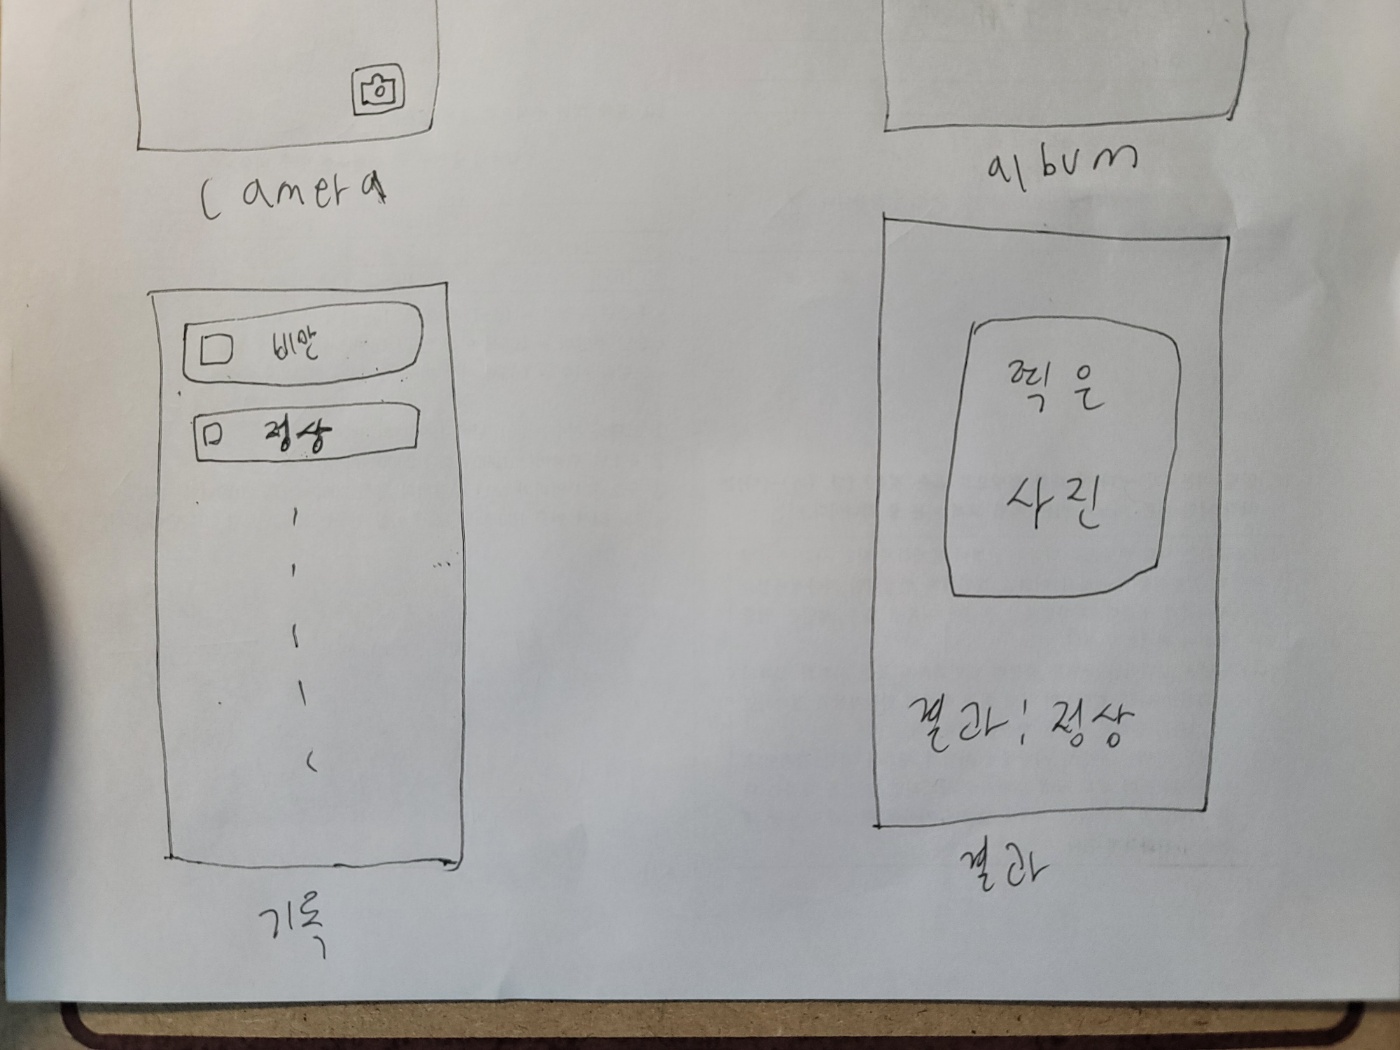 Camera
album
비만
정상
찍은
사진
결과 : 정상
기록
결과